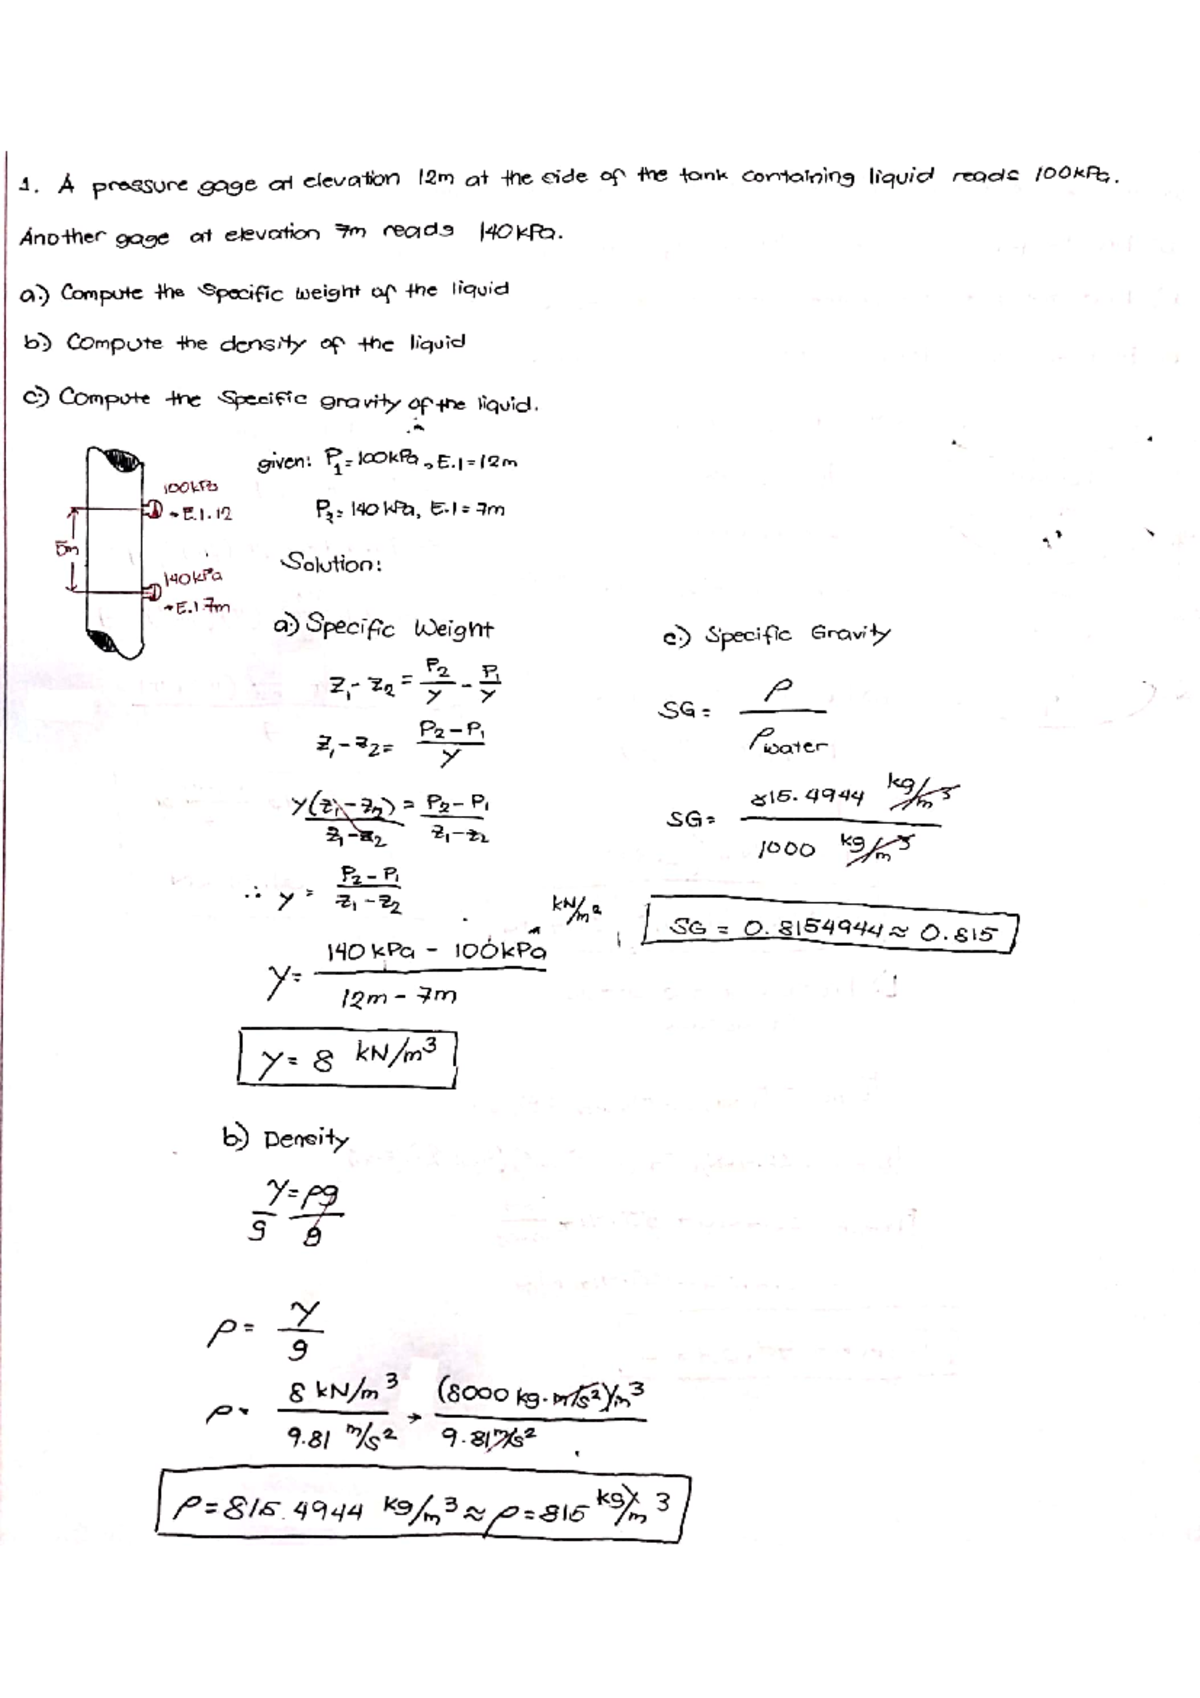 1. A pressure gage at elevation 12m at the side of the tank containing liquid reads 100kPa.
Another gage at elevation 7m reads 140kPa.
a.) Compute the Specific weight of the liquid
b.) Compute the density of the liquid
c.) Compute the Specific gravity of the liquid.
given: P1=100kPa, E.l=12m
P2= 140 kPa, E.l= 7m
100kPa
E.l.12
5m
140kPa
E.l.7m
Solution:
a.) Specific Weight
Z1-Z2 = P2/γ - P1/γ
Z1-Z2= P2-P1/γ
γ(Z1-Z2)/Z1-Z2 = P2-P1/Z1-Z2
∴ γ = P2-P1/Z1-Z2
kN/m2
γ= 140 kPa - 100kPa/12m - 7m
γ= 8 kN/m3
b.) Density
γ/g = ρg/g
ρ= γ/g
ρ= 8 kN/m3/9.81 m/s2 → (8000 kg·m/s2)/m3/9.81m/s2
ρ=815.4944 kg/m3 ≈ ρ=815 kg/m3
c.) Specific Gravity
SG= ρ/ρwater
SG= 815.4944 kg/m3/1000 kg/m3
SG = 0.8154944 ≈ 0.815